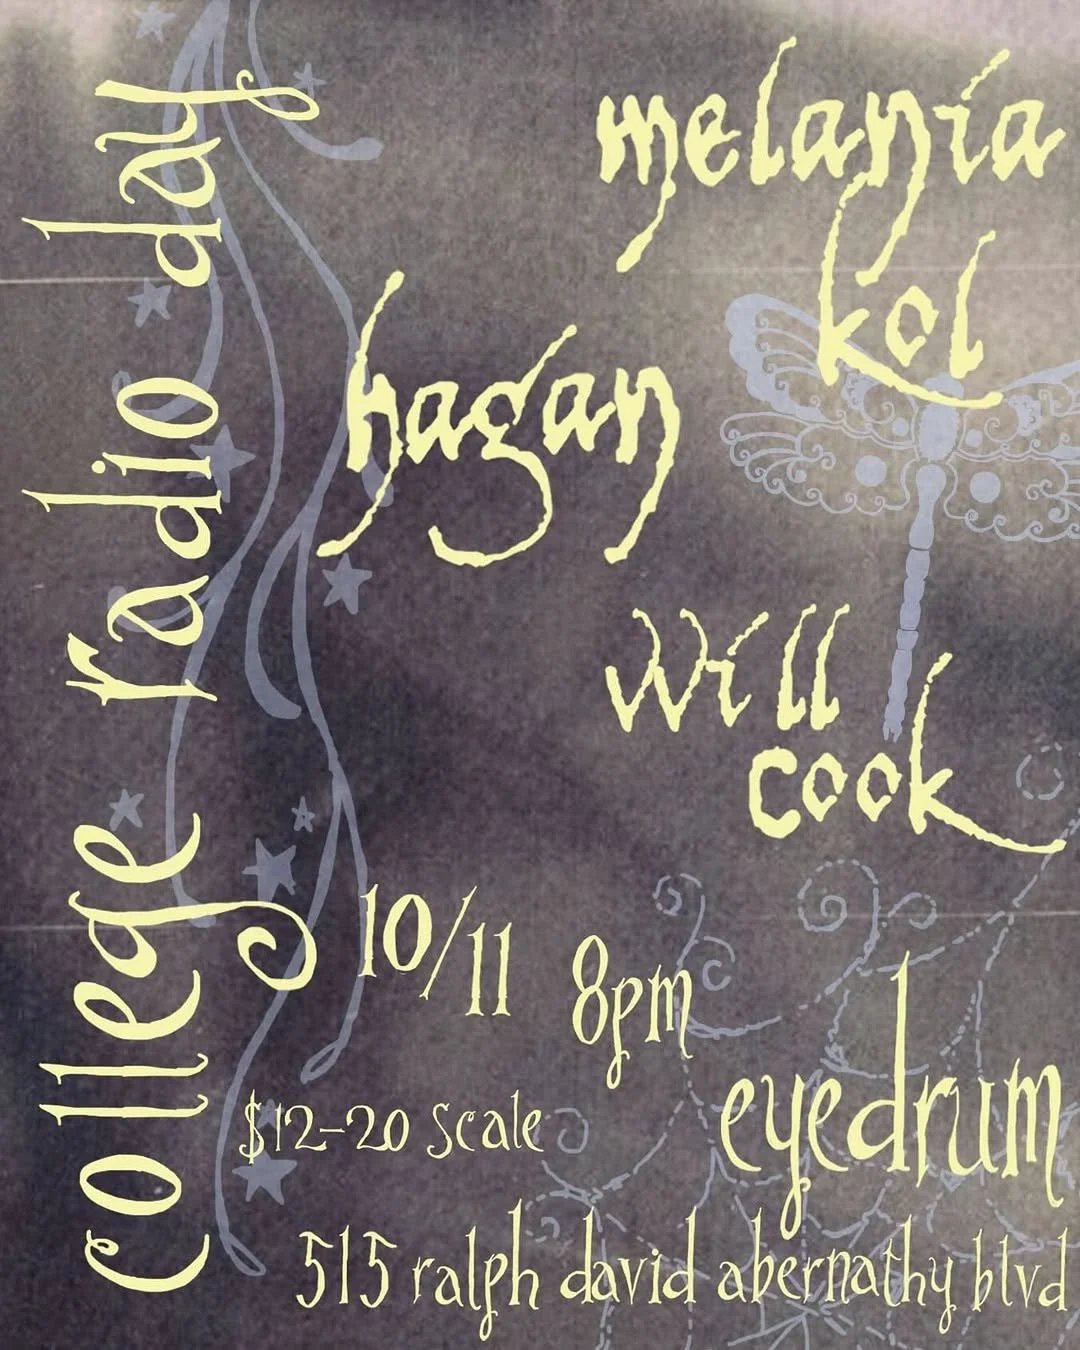 college radio day
melania
kol
hagan
will
cook
10/11
8pm
$12-20 scale
eyedrum
515 ralph david abernathy blvd